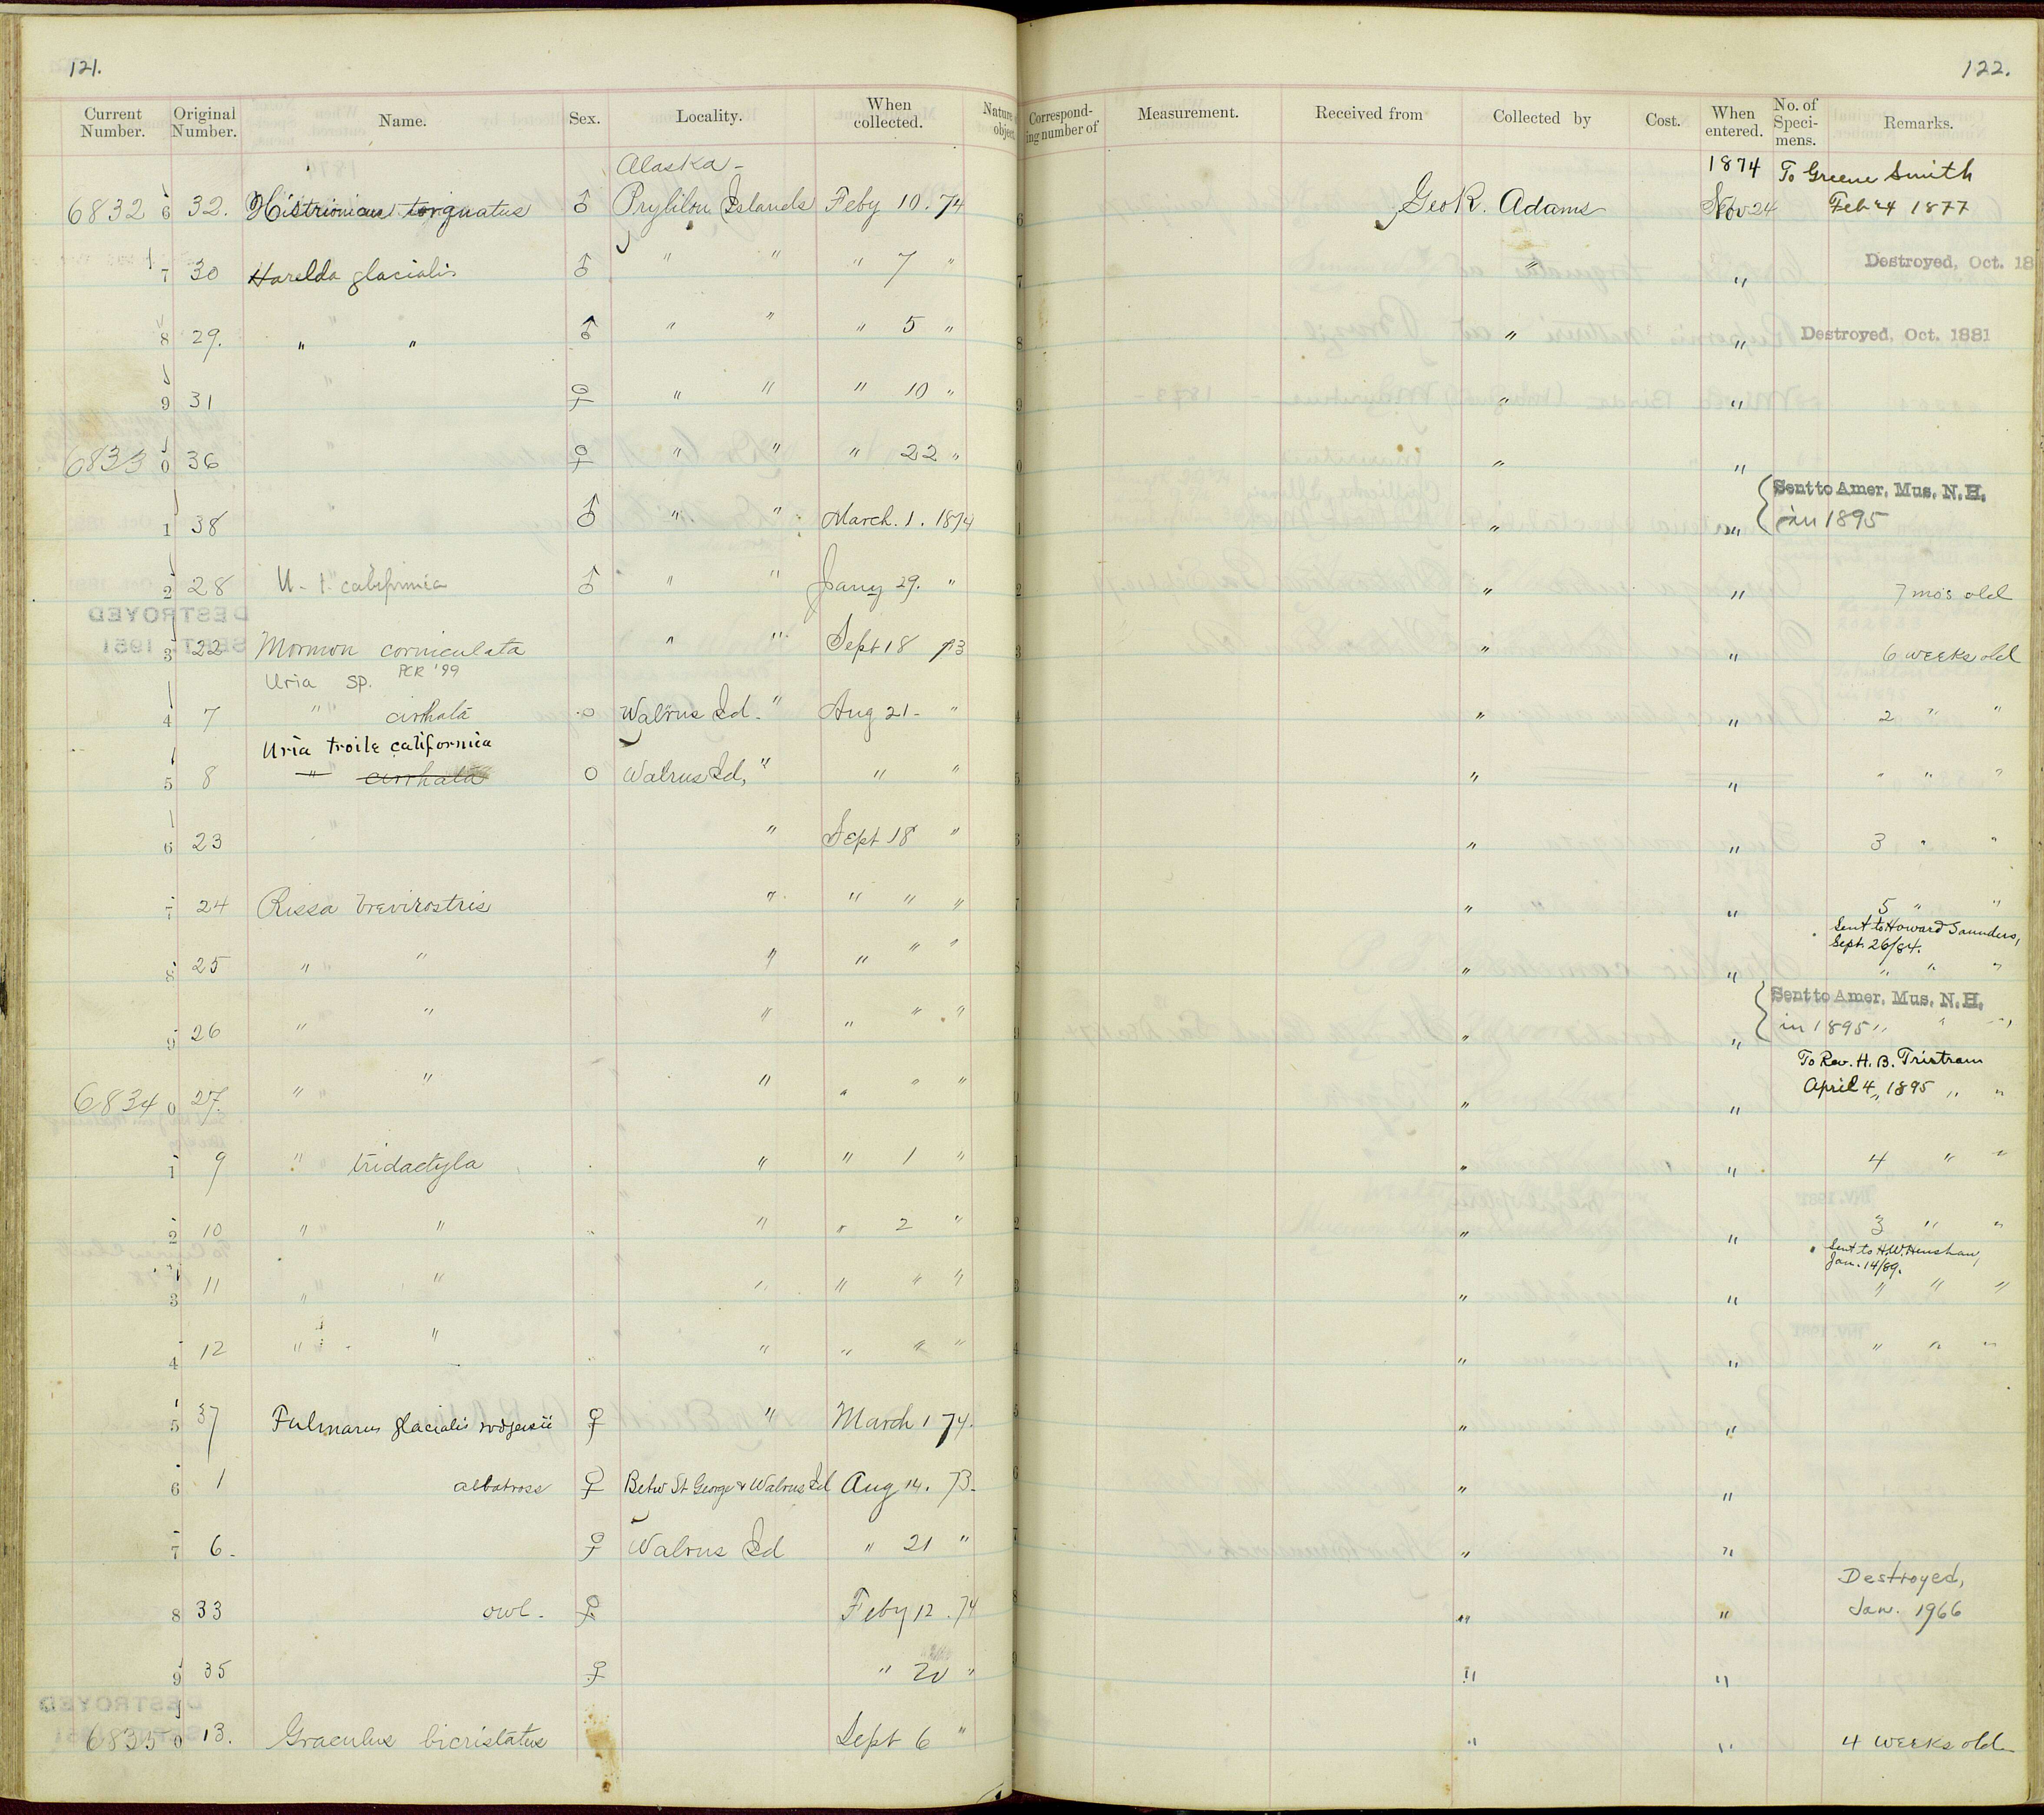 121.
122.
Current Number. Original Number. Name. Sex. Locality. When collected. Nature object. Correspond- ing number of Measurement. Received from Collected by Cost. When entered. No. of Speci- mens. Remarks.
Alaska - 1874 To Greene Smith
6832 6 32. Histrionicus torquatus ♂ Prylilou Islands Feby 10. 74 Geo R. Adams Nov 24 Feb 24 1877
7 30 Harelda glacialis ♂ " " " 7 " " " Destroyed, Oct. 18
8 29. " " ♂ " " " 5 " " " Destroyed, Oct. 1881
9 31 ♀ " " " 10 " " "
6833 0 36 ♀ " " " 22 " " "
Sent to Amer. Mus. N.H.
1 38 ♂ " " March. 1. 1874 " " in 1895
2 28 U. t. californica ♂ " " Jany 29. " " " 7 mo's old
3 22 Mormon corniculata " " Sept 18 73 " " 6 weeks old
Uria sp. PCR '99
4 7 " cirrhata o Walrus Id. " Aug 21 - " " " 2 " "
Uria troile californica
5 8 " cirrhata o Walrus Id, " " " " " " " "
6 23 " Sept 18 " " " 3 " "
7 24 Rissa brevirostris " " " " " " 5 " "
Sent to Howard Saunders,
Sept. 26/84.
8 25 " " " " " " " " " " "
Sent to Amer. Mus. N.H.
9 26 " " " " " " " " in 1895 " " "
To Rev. H. B. Tristram
6834 0 27. " " " " " " " " April 4, 1895 " "
1 9 " tridactyla " " 1 " " " 4 " "
2 10 " " " " 2 " " " 3 " "
Sent to H.W. Henshaw,
Jan. 14/89.
3 11 " " " " " " " " " " "
4 12 " " " " " " " " " " "
5 37 Fulmarus glacialis rodgersii ♀ " March 1 74. " "
6 1 albatross ♀ Betw St George & Walrus Id Aug 14. 73. " "
7 6. ♀ Walrus Id " 21 " " "
Destroyed,
8 33 owl. ♀ Feby 12. 74 " " Jan. 1966
9 35 ♀ " 20 " " "
6835 0 13. Graculus bicristatus Sept 6 " " " 4 weeks old